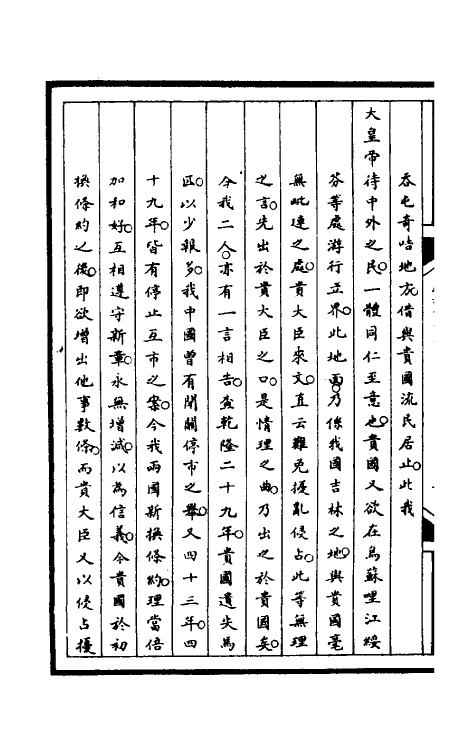 吞屯奇咭地方借與貴國流民居止此我
大皇帝待中外之民一體同仁至意也貴國又欲在烏蘇哩江綏
芬等處游行立界此地面乃係我國吉林之地與貴國毫
無毗連之處貴大臣來文直云難免擾亂侵占此等無理
之言先出於貴大臣之口是情理之曲乃出之於貴國矣
今我二人亦有一言相告查乾隆二十九年貴國遺失馬
匹以少報多我中國曾有閉關停市之舉又四十三年四
十九年皆有停止互市之案今我兩國新換條約理當倍
加和好互相遵守新章永無增減以為信義今貴國於初
換條約之後即欲增出他事数條而貴大臣又以侵占擾